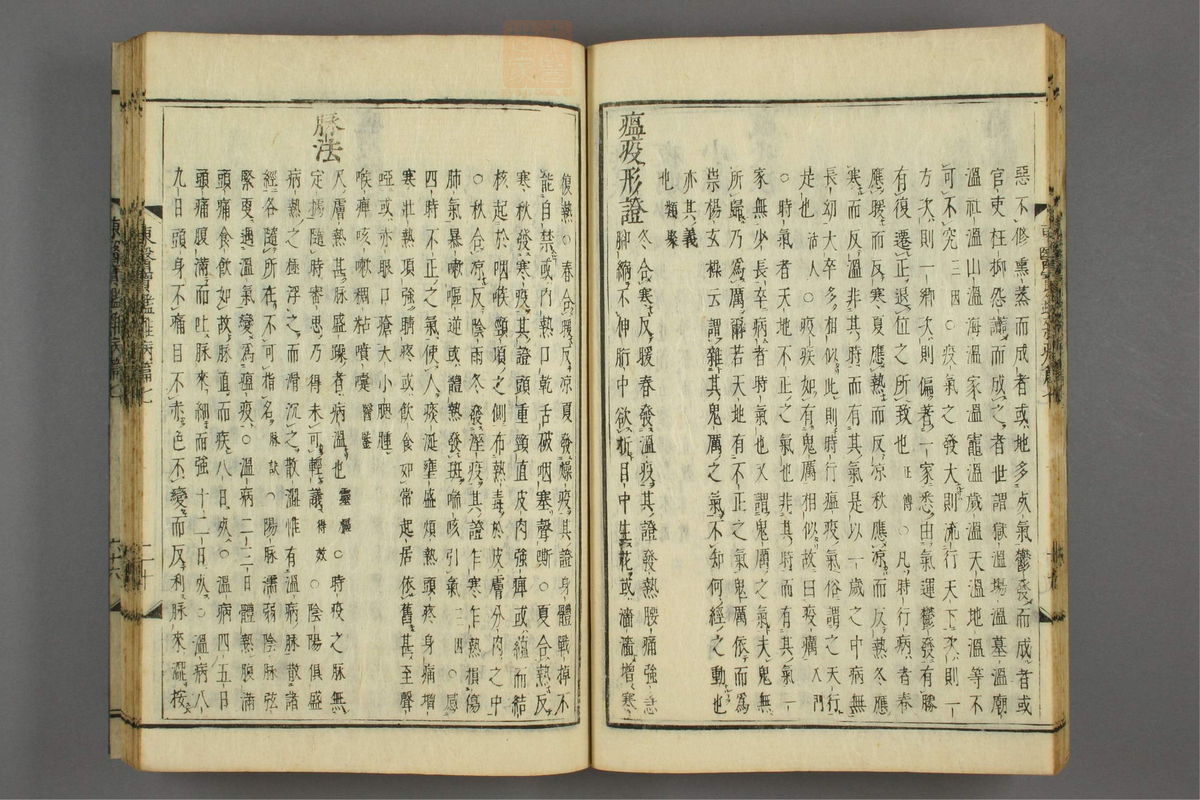 惡不修熏蒸而成者或地多死氣鬱發而成者或
官吏枉抑怨讟而成之者世謂獄溫場溫墓溫廟
溫社溫山溫海溫家溫竈溫歲溫天溫地溫等不
可不究三因○疫氣之發大則流行天下次則一
方次則一鄕次則偏著一家悉由氣運鬱發有勝
有復遷正退位之所致也正傳○凡時行病者春
應暖而反寒夏應熱而反凉秋應凉而反熱冬應
寒而反溫非其時而有其氣是以一歲之中病無
長幼大卒多相似此則時行瘟疫氣俗謂之天行
是也活人○疫疾如有鬼厲相似故曰疫癘入門
○時氣者天地不正之氣也非其時而有其氣一
家無少長卒病者時氣也又謂鬼厲之氣夫鬼無
所歸乃爲厲爾若天地有不正之氣鬼厲依而爲
祟楊玄操云謂雜其鬼厲之氣不知何經之動也
亦其義
也類聚
瘟疫形證 冬合寒反暖春發溫疫其證發熱腰痛強急
脚縮不伸胻中欲折目中生花或濇濇增寒
復熱○春合暖反凉夏發燥疫其證身體戰掉不
能自禁或內熱口乾舌破咽塞聲嘶○夏合熱反
寒秋發寒疫其證頭重頸直皮肉強痺或蘊而結
核起於咽喉頸項之側布熱毒於皮膚分肉之中
○秋合凉反陰雨冬發溼疫其證乍寒乍熱損傷
肺氣暴嗽嘔逆或體熱發斑喘咳引氣三因○感
四時不正之氣使人痰涎壅盛煩熱頭疼身痛增
寒壯熱項強睛疼或飮食如常起居依舊甚至聲
啞或赤眼口瘡大小腮腫
喉痺咳嗽稠粘噴嚏醫鑒
脉法 人膚熱甚脉盛躁者病溫也靈樞○時疫之脉無
定據隨時審思乃得未可輕議得效○陰陽俱盛
病熱之極浮之而滑沉之散澀惟有溫病脉散諸
經各隨所在不可指名脉訣○陽脉濡弱陰脉弦
緊更遇溫氣變爲瘟疫○溫病二三日體熱腹滿
頭痛食飮如故脉直而疾八日死○溫病四五日
頭痛腹滿而吐脉來細而強十二日死○溫病八
九日頭身不痛目不赤色不變而反利脉來澀按